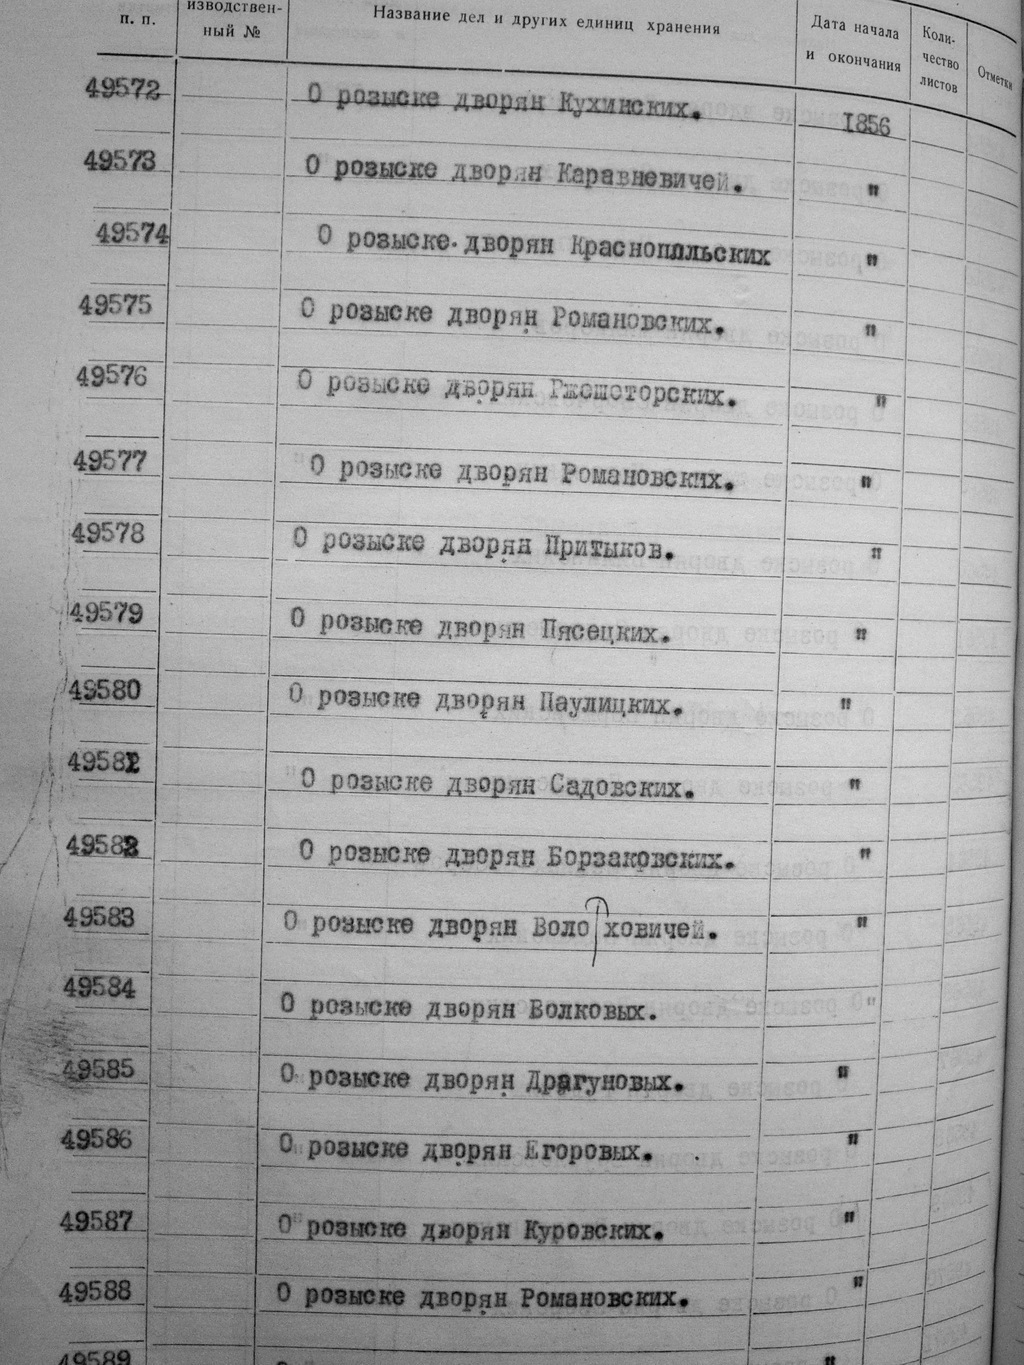 п. п.
изводствен-
ный №
Название дел и других единиц хранения
Дата начала
и окончания
Коли-
чество
листов
Отметки
49572 О розыске дворян Кухинских. 1856
49573 О розыске дворян Каравневичей. "
49574 О розыске дворян Краснопольских "
49575 О розыске дворян Романовских. "
49576 О розыске дворян Ржешоторских. "
49577 О розыске дворян Романовских. "
49578 О розыске дворян Притыков. "
49579 О розыске дворян Пясецких. "
49580 О розыске дворян Паулицких. "
49581 О розыске дворян Садовских. "
49582 О розыске дворян Борзаковских. "
49583 О розыске дворян Волоховичей. "
49584 О розыске дворян Волковых. "
49585 О розыске дворян Драгуновых. "
49586 О розыске дворян Егоровых. "
49587 О розыске дворян Куровских. "
49588 О розыске дворян Романовских. "
49589 "